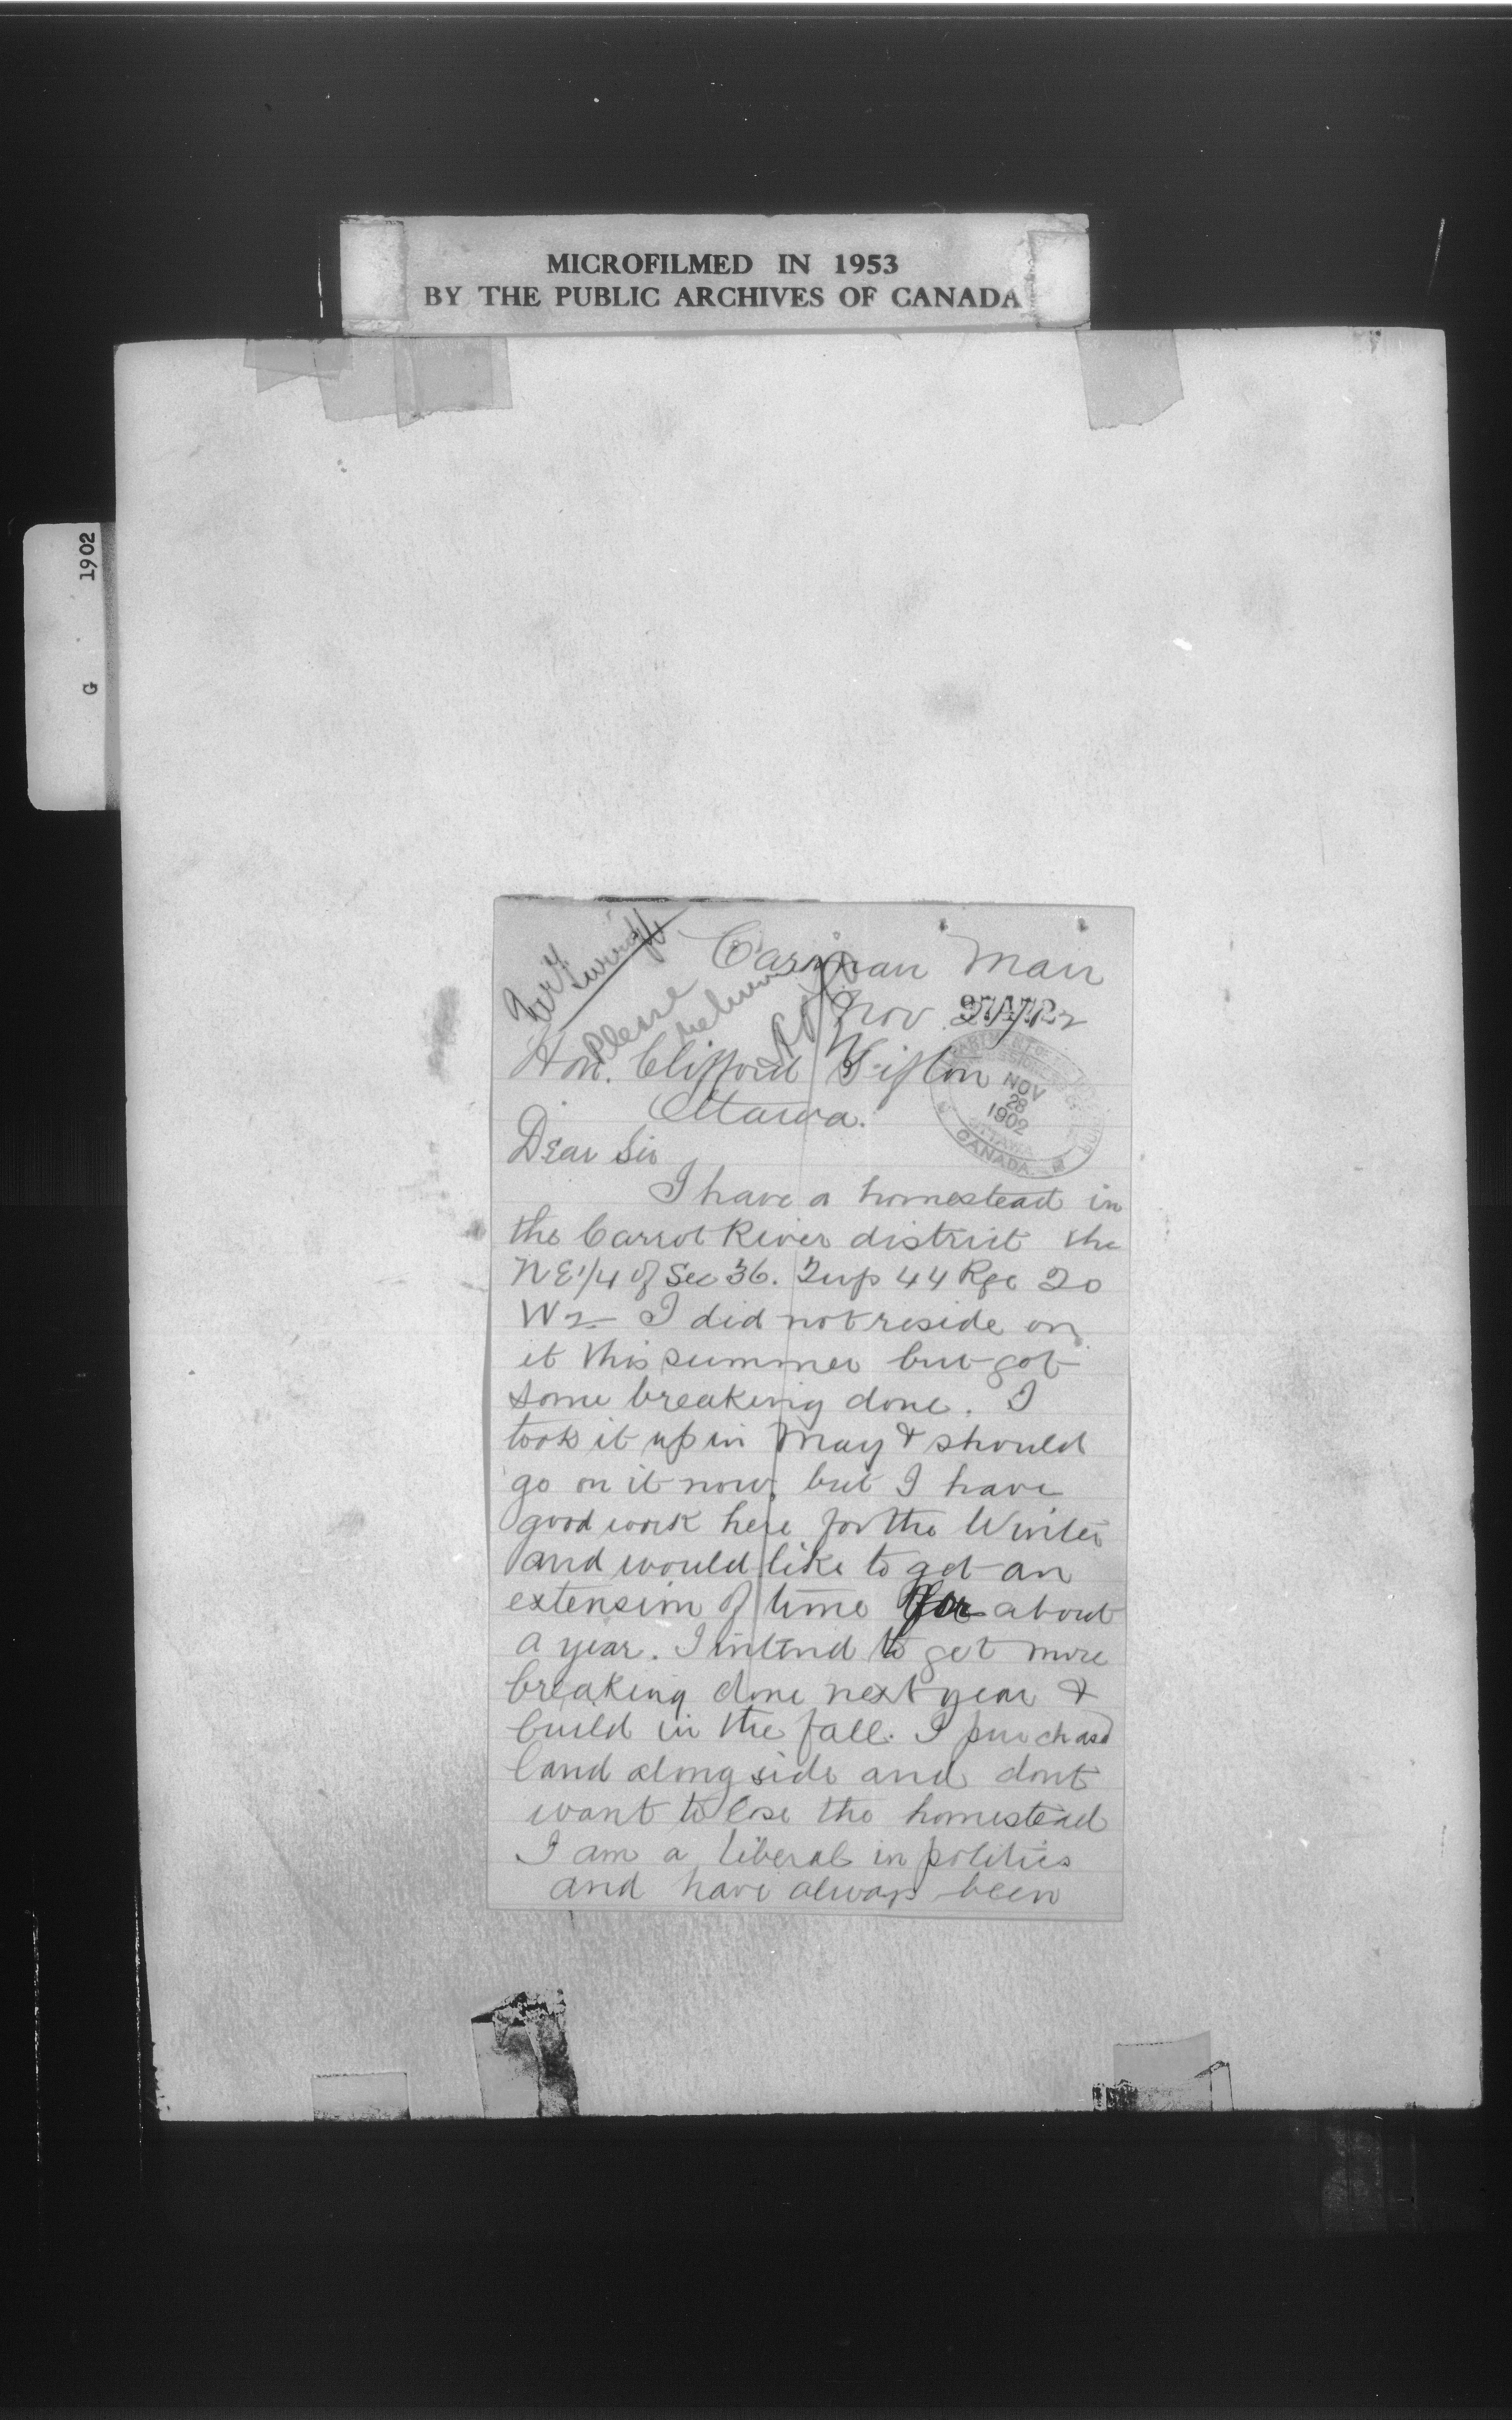 MICROFILMED IN 1953
BY THE PUBLIC ARCHIVES OF CANADA
1902
G
Carman Man
Nov
Please
return
Hon. Clifford Sifton
Ottawa.
NOV
28
1902
OTTAWA
CANADA
Dear Sir
I have a homestead in
the Carrot River district the
NE 1/4 of Sec 36. Twp 44 Rge 20
W2 I did not reside on
it this summer but got
some breaking done. I
took it up in May & should
go on it now, but I have
good work here for the Winter
and would like to get an
extension of time for about
a year. I intend to get more
breaking done next year &
build in the fall. I purchasd
land along side and dont
want to lose the homestead
I am a liberal in politics
and have always been